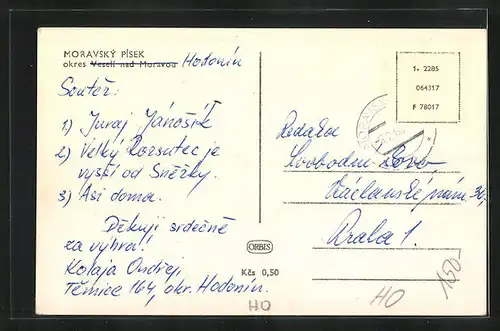 MORAVSKÝ PÍSEK
okres Veselí nad Moravou Hodonín
Soutěž:
1) Juraj Jánošík
2) Velký Rozsutec je
vyšší od Sněžky.
3) Asi doma.
Děkuji srdečně
za výhru!
Kolaja Ondřej
Těmice 164, okr. Hodonín.
HO
ORBIS
Kčs 0,50
1. 2285
064317
F 78017
Svobodné
Václavské nám. 36,
Praha 1.
HO
150